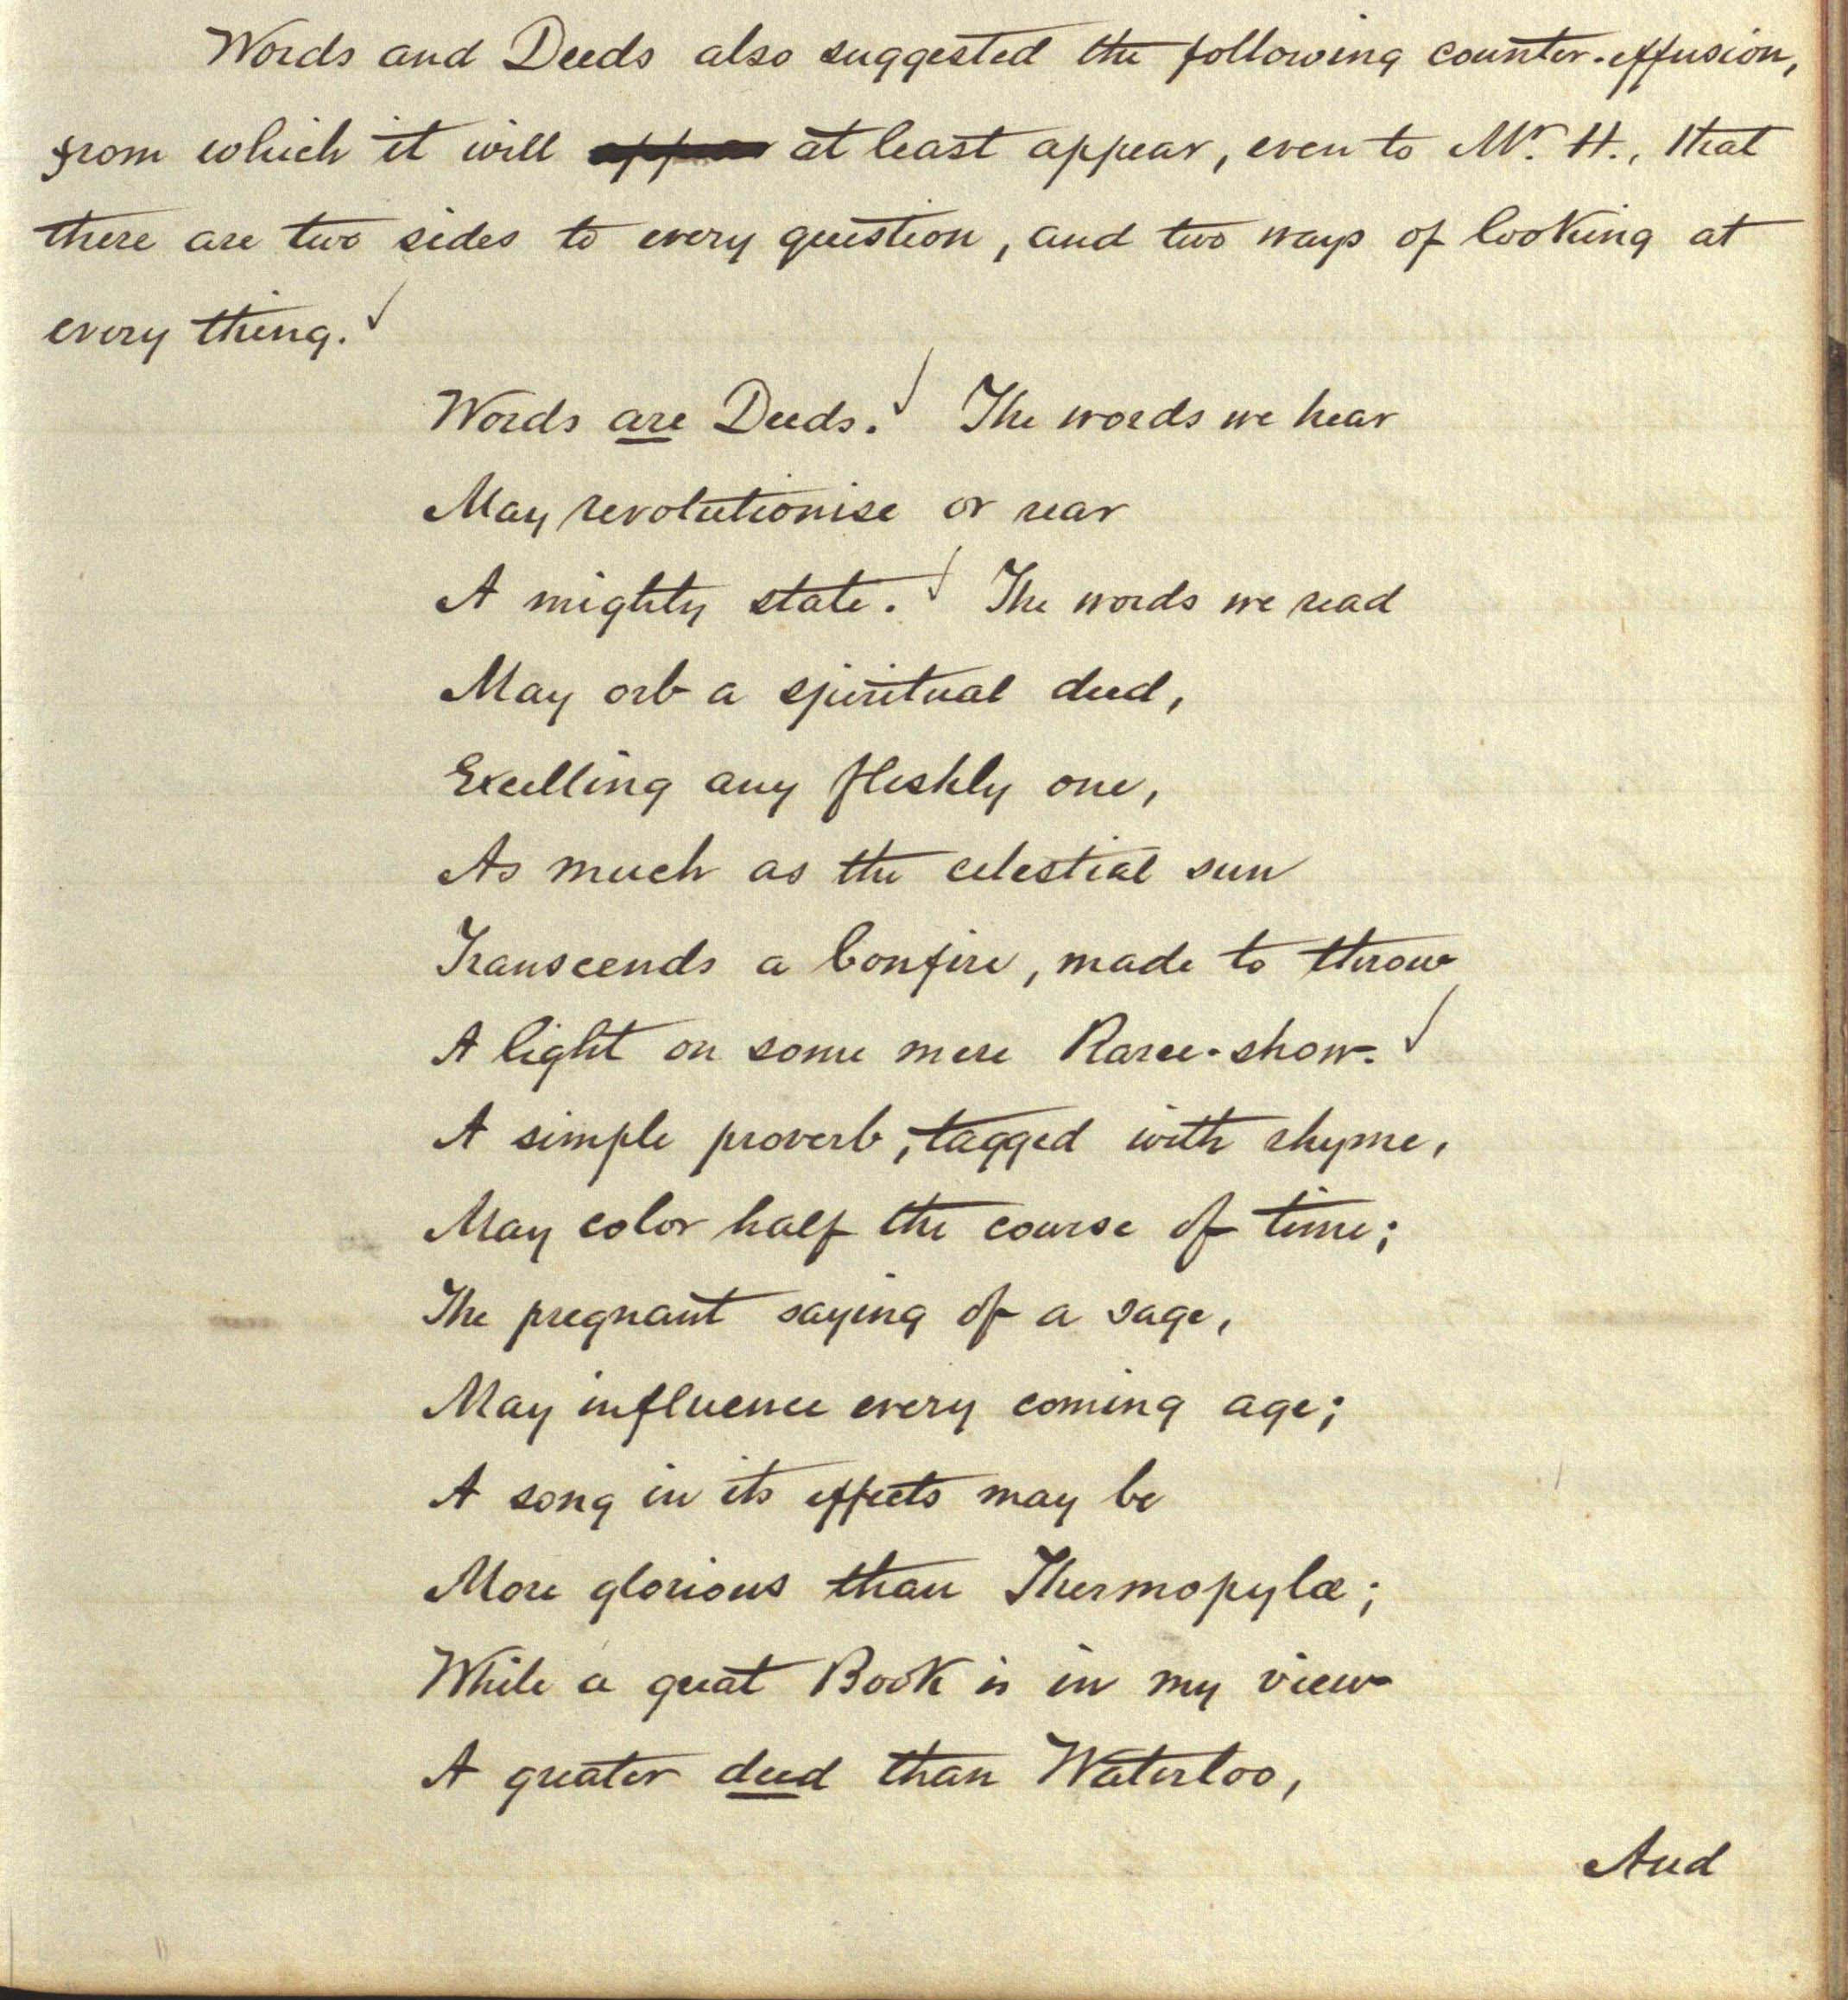 Words and Deeds also suggested the following counter-effusion,
from which it will at least appear, even to Mr. H., that
there are two sides to every question, and two ways of looking at
every thing.
Words are Deeds. The words we hear
May revolutionise or rear
A mighty state. The words we read
May orb a spiritual deed,
Excelling any fleshly one,
As much as the celestial sun
Transcends a bonfire, made to throw
A light on some mere Raree-show.
A simple proverb, tagged with rhyme,
May color half the course of time;
The pregnant saying of a sage,
May influence every coming age;
A song in its effects may be
More glorious than Thermopylæ;
While a great Book is in my view
A greater deed than Waterloo,
And